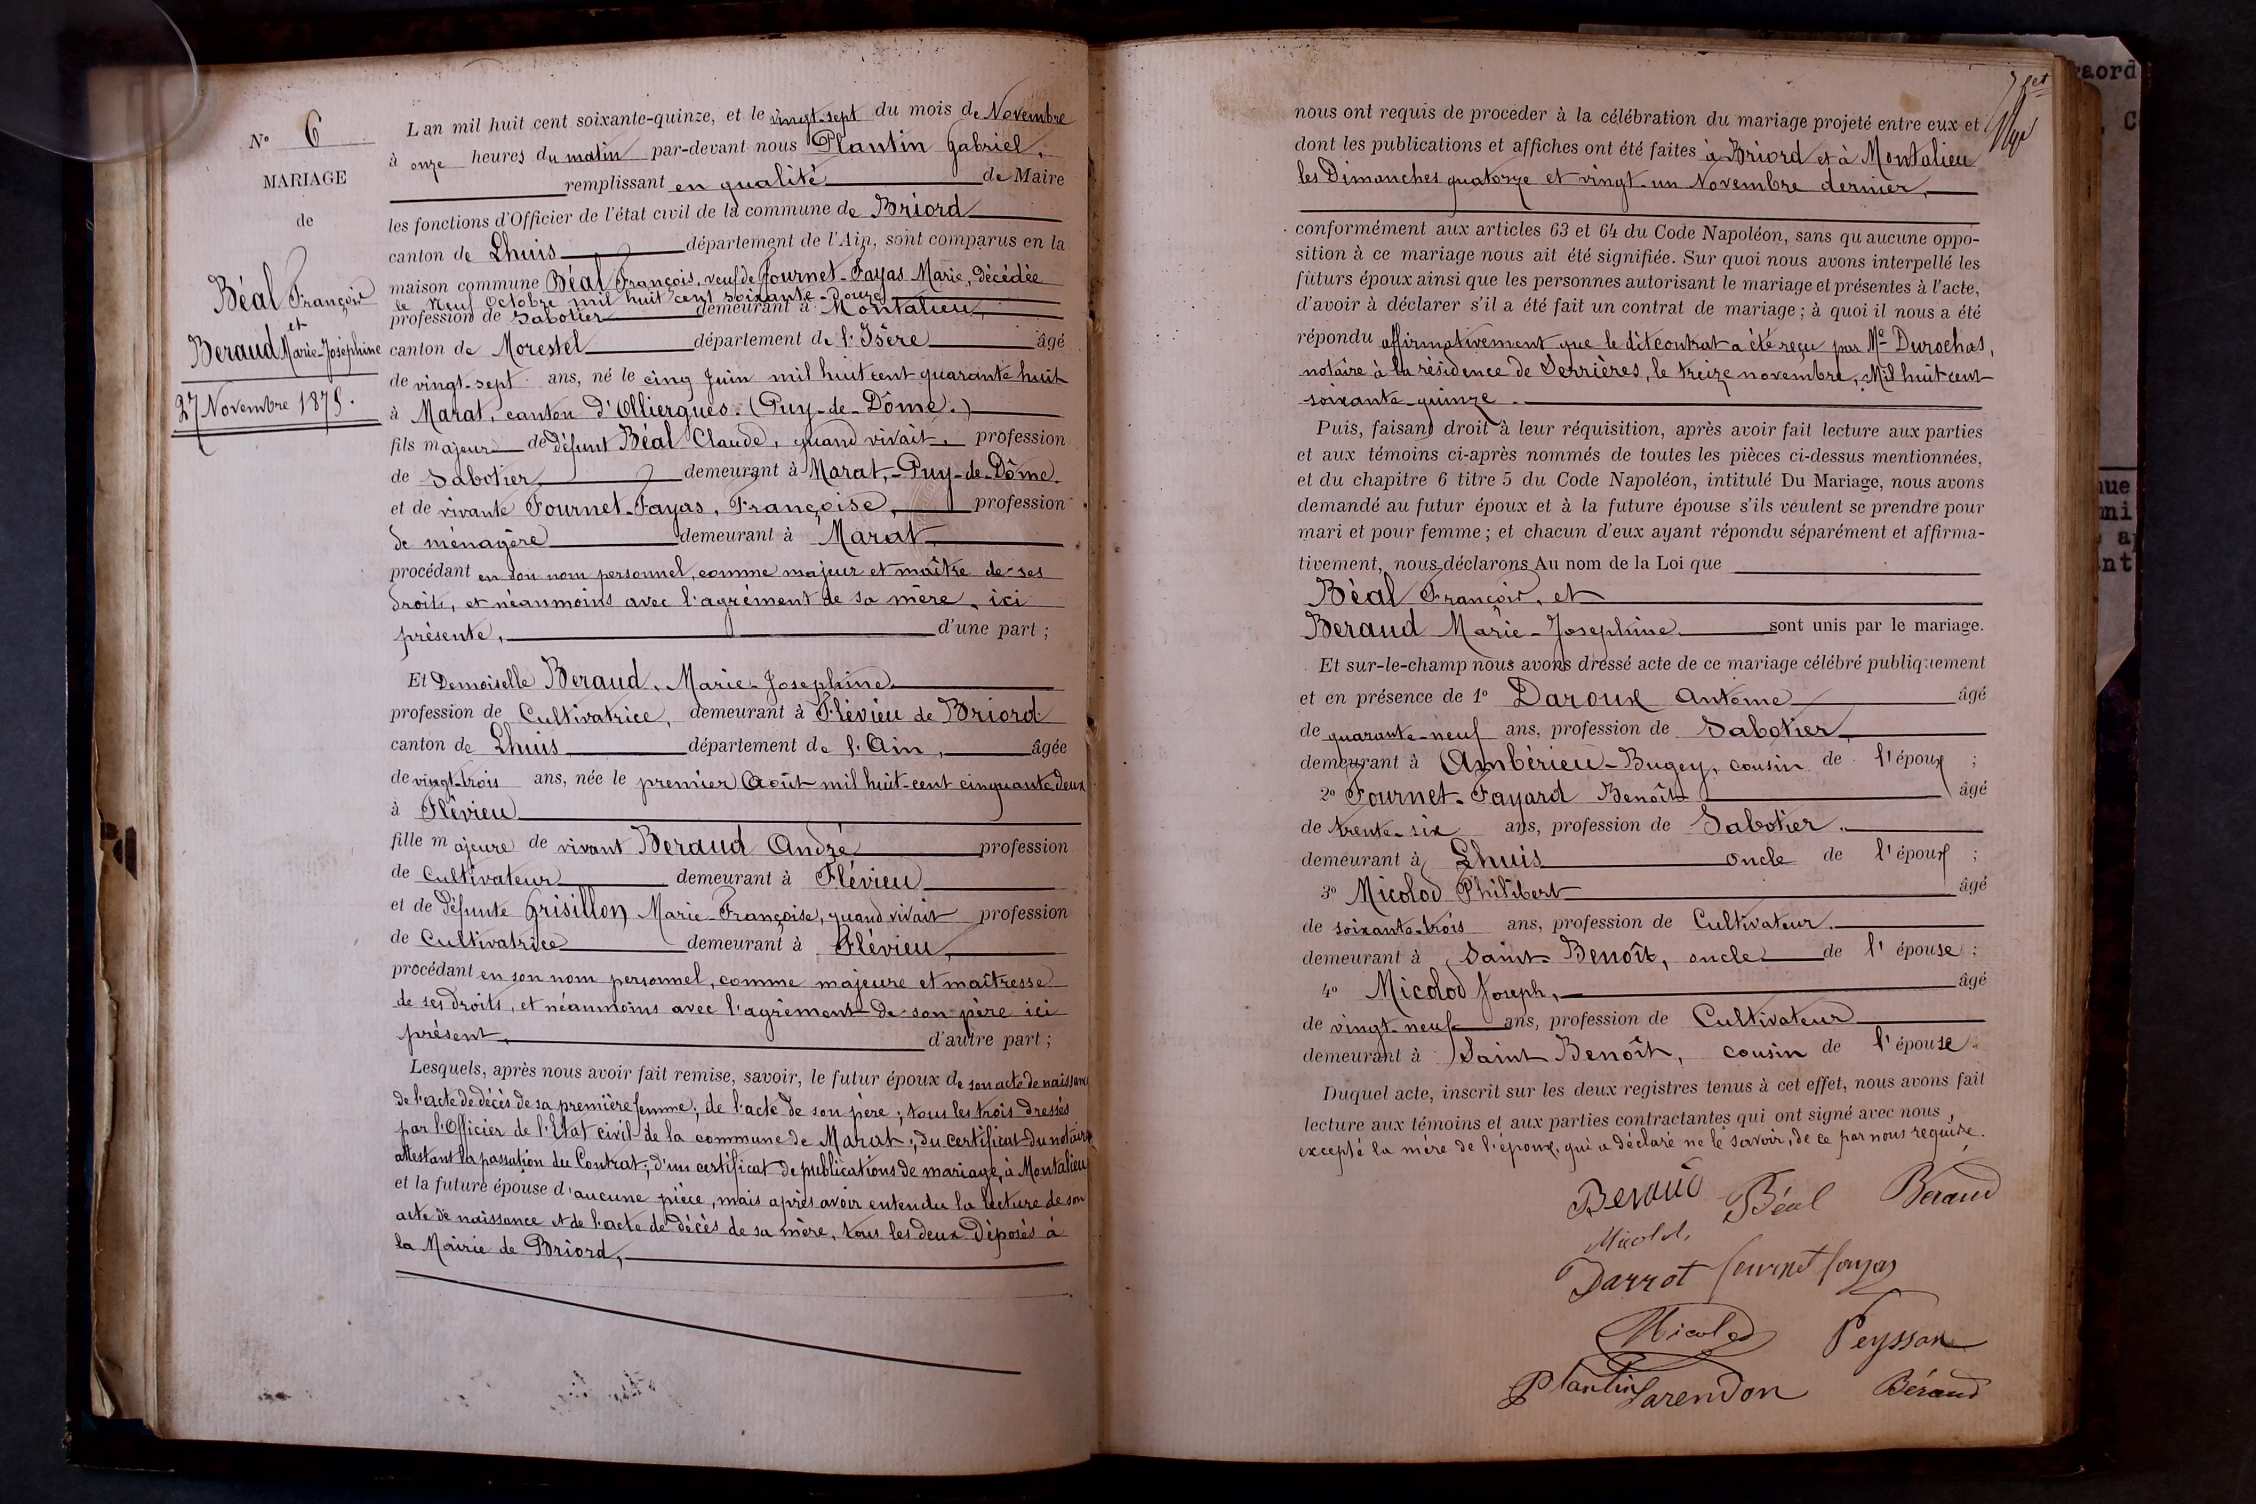 N° 6
MARIAGE
de
Béal François
et
Beraud Marie-Joséphine
27 Novembre 1875.
L'an mil huit cent soixante-quinze, et le vingt-sept du mois de Novembre
à onze heures du matin par-devant nous Plantin Gabriel,
remplissant en qualité de Maire
les fonctions d'Officier de l'état civil de la commune de Briord
canton de Lhuis département de l'Ain, sont comparus en la
maison commune Béal François, veuf de Fournet-Fayas Marie, décédée
le Neuf Octobre mil huit cent soixante-douze
profession de Sabotier demeurant à Montalieu,
canton de Morestel département de l'Isère âgé
de vingt-sept ans, né le cinq Juin mil huit cent quarante huit
à Marat, canton d'Ollierques. (Puy-de-Dôme.)
fils majeur de défunt Béal Claude, quand vivait, profession
de Sabotier, demeurant à Marat, Puy-de-Dôme.
et de vivante Fournet-Fayas, Françoise, profession
de ménagère demeurant à Marat,
procédant en son nom personnel, comme majeur et maître de ses
droits, et néanmoins avec l'agrément de sa mère, ici
présente, d'une part ;
Et Demoiselle Beraud, Marie-Josephine
profession de Cultivatrice, demeurant à Flévieu de Briord
canton de Lhuis département de l'Ain, âgée
de vingt-trois ans, née le premier Août mil huit-cent cinquante deux
à Flévieu
fille majeure de vivant Beraud André profession
de Cultivateur demeurant à Flévieu
et de défunte Grisillon Marie-Françoise, quand vivait profession
de Cultivatrice demeurant à Flévieu,
procédant en son nom personnel, comme majeure et maîtresse
de ses droits, et néanmoins avec l'agrément de son père ici
présent, d'autre part ;
Lesquels, après nous avoir fait remise, savoir, le futur époux de son acte de naissance
de l'acte de décès de sa première femme; de l'acte de son père; tous les trois dressés
par l'Officier de l'Etat civil de la commune de Marat; du certificat du notaire
attestant la passation du Contrat; d'un certificat de publications de mariage, à Montalieu
et la future épouse d'aucune pièce, mais après avoir entendu la lecture de son
acte de naissance et de l'acte de décès de sa mère, tous les deux déposés à
la Mairie de Briord,
nous ont requis de procéder à la célébration du mariage projeté entre eux et
dont les publications et affiches ont été faites à Briord et à Montalieu
les Dimanches quatorze et vingt-un Novembre dernier,
conformément aux articles 63 et 64 du Code Napoléon, sans qu'aucune oppo-
sition à ce mariage nous ait été signifiée. Sur quoi nous avons interpellé les
futurs époux ainsi que les personnes autorisant le mariage et présentes à l'acte,
d'avoir à déclarer s'il a été fait un contrat de mariage ; à quoi il nous a été
répondu affirmativement que le dit contrat a été reçu par Me Durochas,
notaire à la résidence de Serrières, le treize novembre, Mil huit cent
soixante-quinze.
Puis, faisant droit à leur réquisition, après avoir fait lecture aux parties
et aux témoins ci-après nommés de toutes les pièces ci-dessus mentionnées,
et du chapitre 6 titre 5 du Code Napoléon, intitulé Du Mariage, nous avons
demandé au futur époux et à la future épouse s'ils veulent se prendre pour
mari et pour femme ; et chacun d'eux ayant répondu séparément et affirma-
tivement, nous déclarons Au nom de la Loi que
Béal François, et
Beraud Marie-Josephine sont unis par le mariage.
Et sur-le-champ nous avons dressé acte de ce mariage célébré publiquement
et en présence de 1° Daroux Antoine âgé
de quarante-neuf ans, profession de Sabotier,
demeurant à Ambérieu-Bugey, cousin de l'époux ;
2° Fournet-Fayard Benoît âgé
de trente-six ans, profession de Sabotier.
demeurant à Lhuis oncle de l'époux ;
3° Micolod Philibert âgé
de soixante-trois ans, profession de Cultivateur.
demeurant à Saint-Benoît, oncle de l'épouse ;
4° Micolod Joseph, âgé
de vingt-neuf ans, profession de Cultivateur
demeurant à Saint Benoît, cousin de l'épouse.
Duquel acte, inscrit sur les deux registres tenus à cet effet, nous avons fait
lecture aux témoins et aux parties contractantes qui ont signé avec nous,
excepté la mère de l'époux, qui a déclaré ne le savoir, de ce par nous requise.
Beraud Béal Beraud
Micolod
Darrot fournet fayas
Micolod Peysson
Plantin Sarendon Béraud